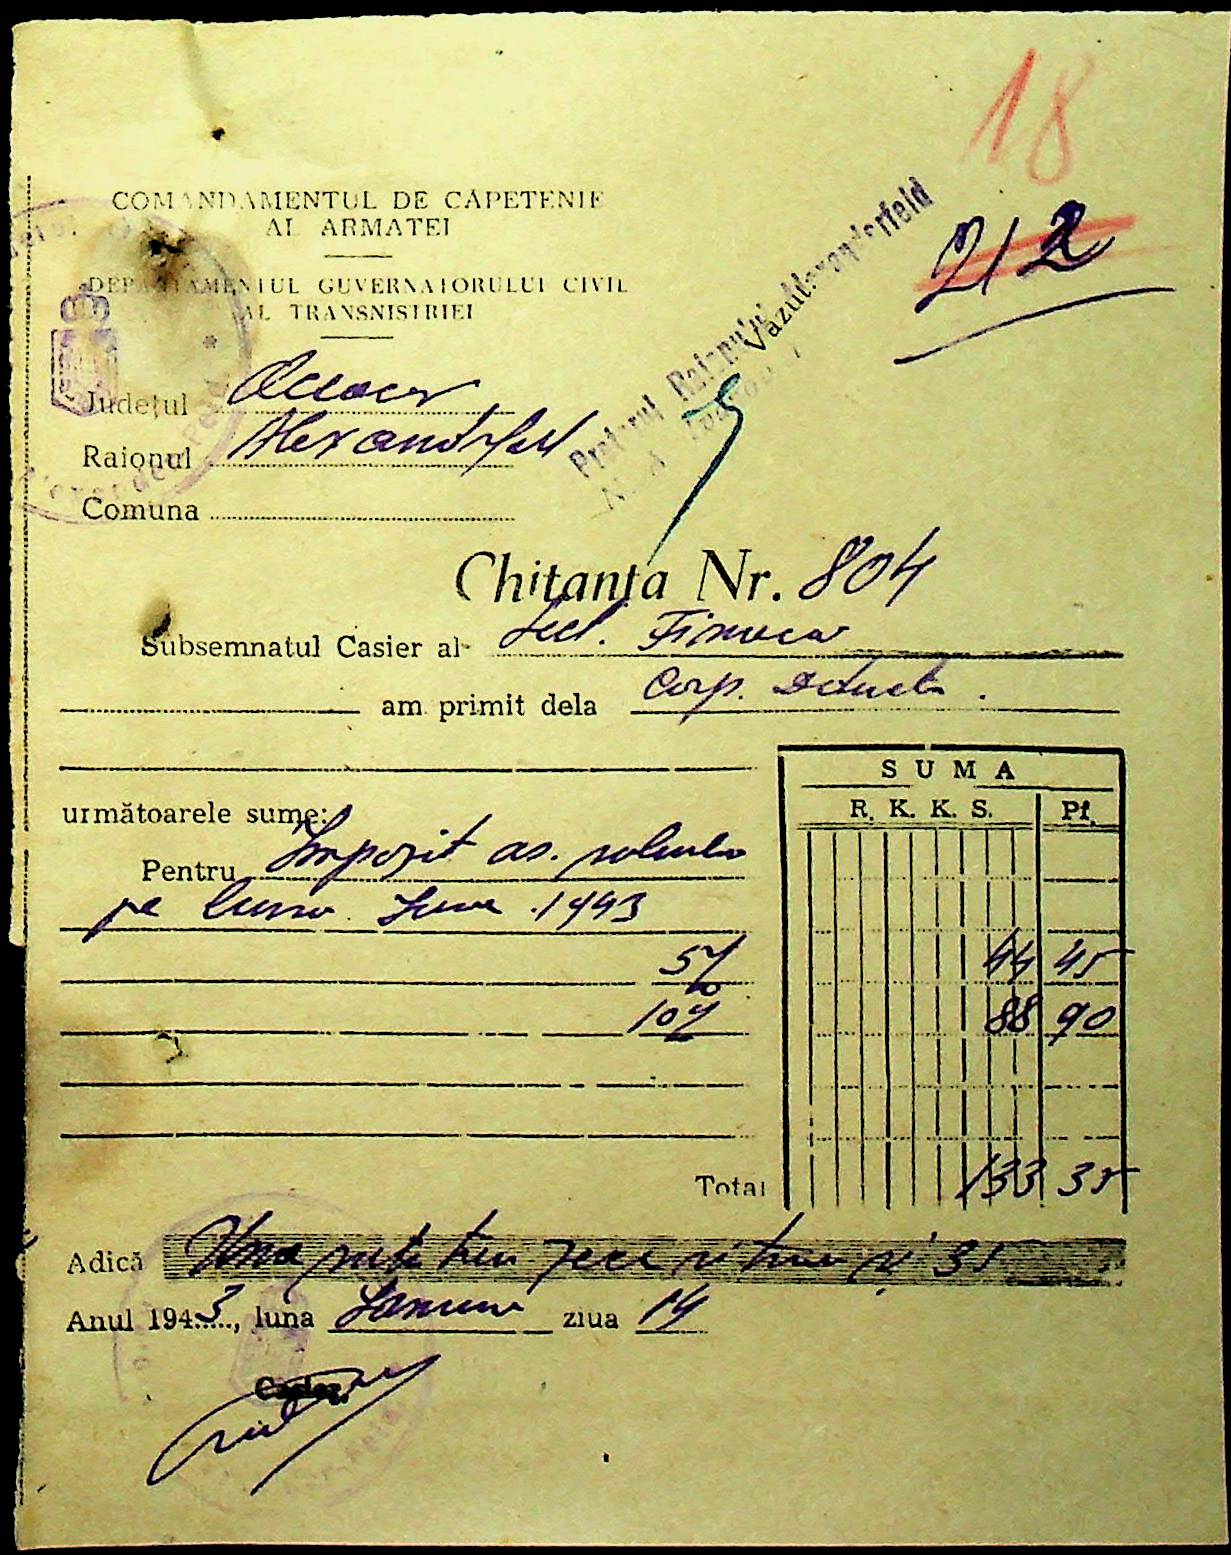 18
212
COMANDAMENTUL DE CAPETENIE
AL ARMATEI
DEPARTAMENTUL GUVERNATORULUI CIVIL
AL TRANSNISTRIEI
Văzut:
Pretorul Raionului Alexanderfeld
Județul Oceacov
Raionul Alexandrfeld
Comuna
Chitanța Nr. 804
Subsemnatul Casier al Sect. Financiar
am primit dela Corp. Didactic.
următoarele sume:
Pentru Impozit as. salariilor
pe luna 1943
SUMA
R. K. K. S. Pf.
5% 44 45
10% 88 90
Total 133 35
Adică Una sută trei zeci și trei și 35
Anul 1943, luna Ianuarie ziua 14
Casier,